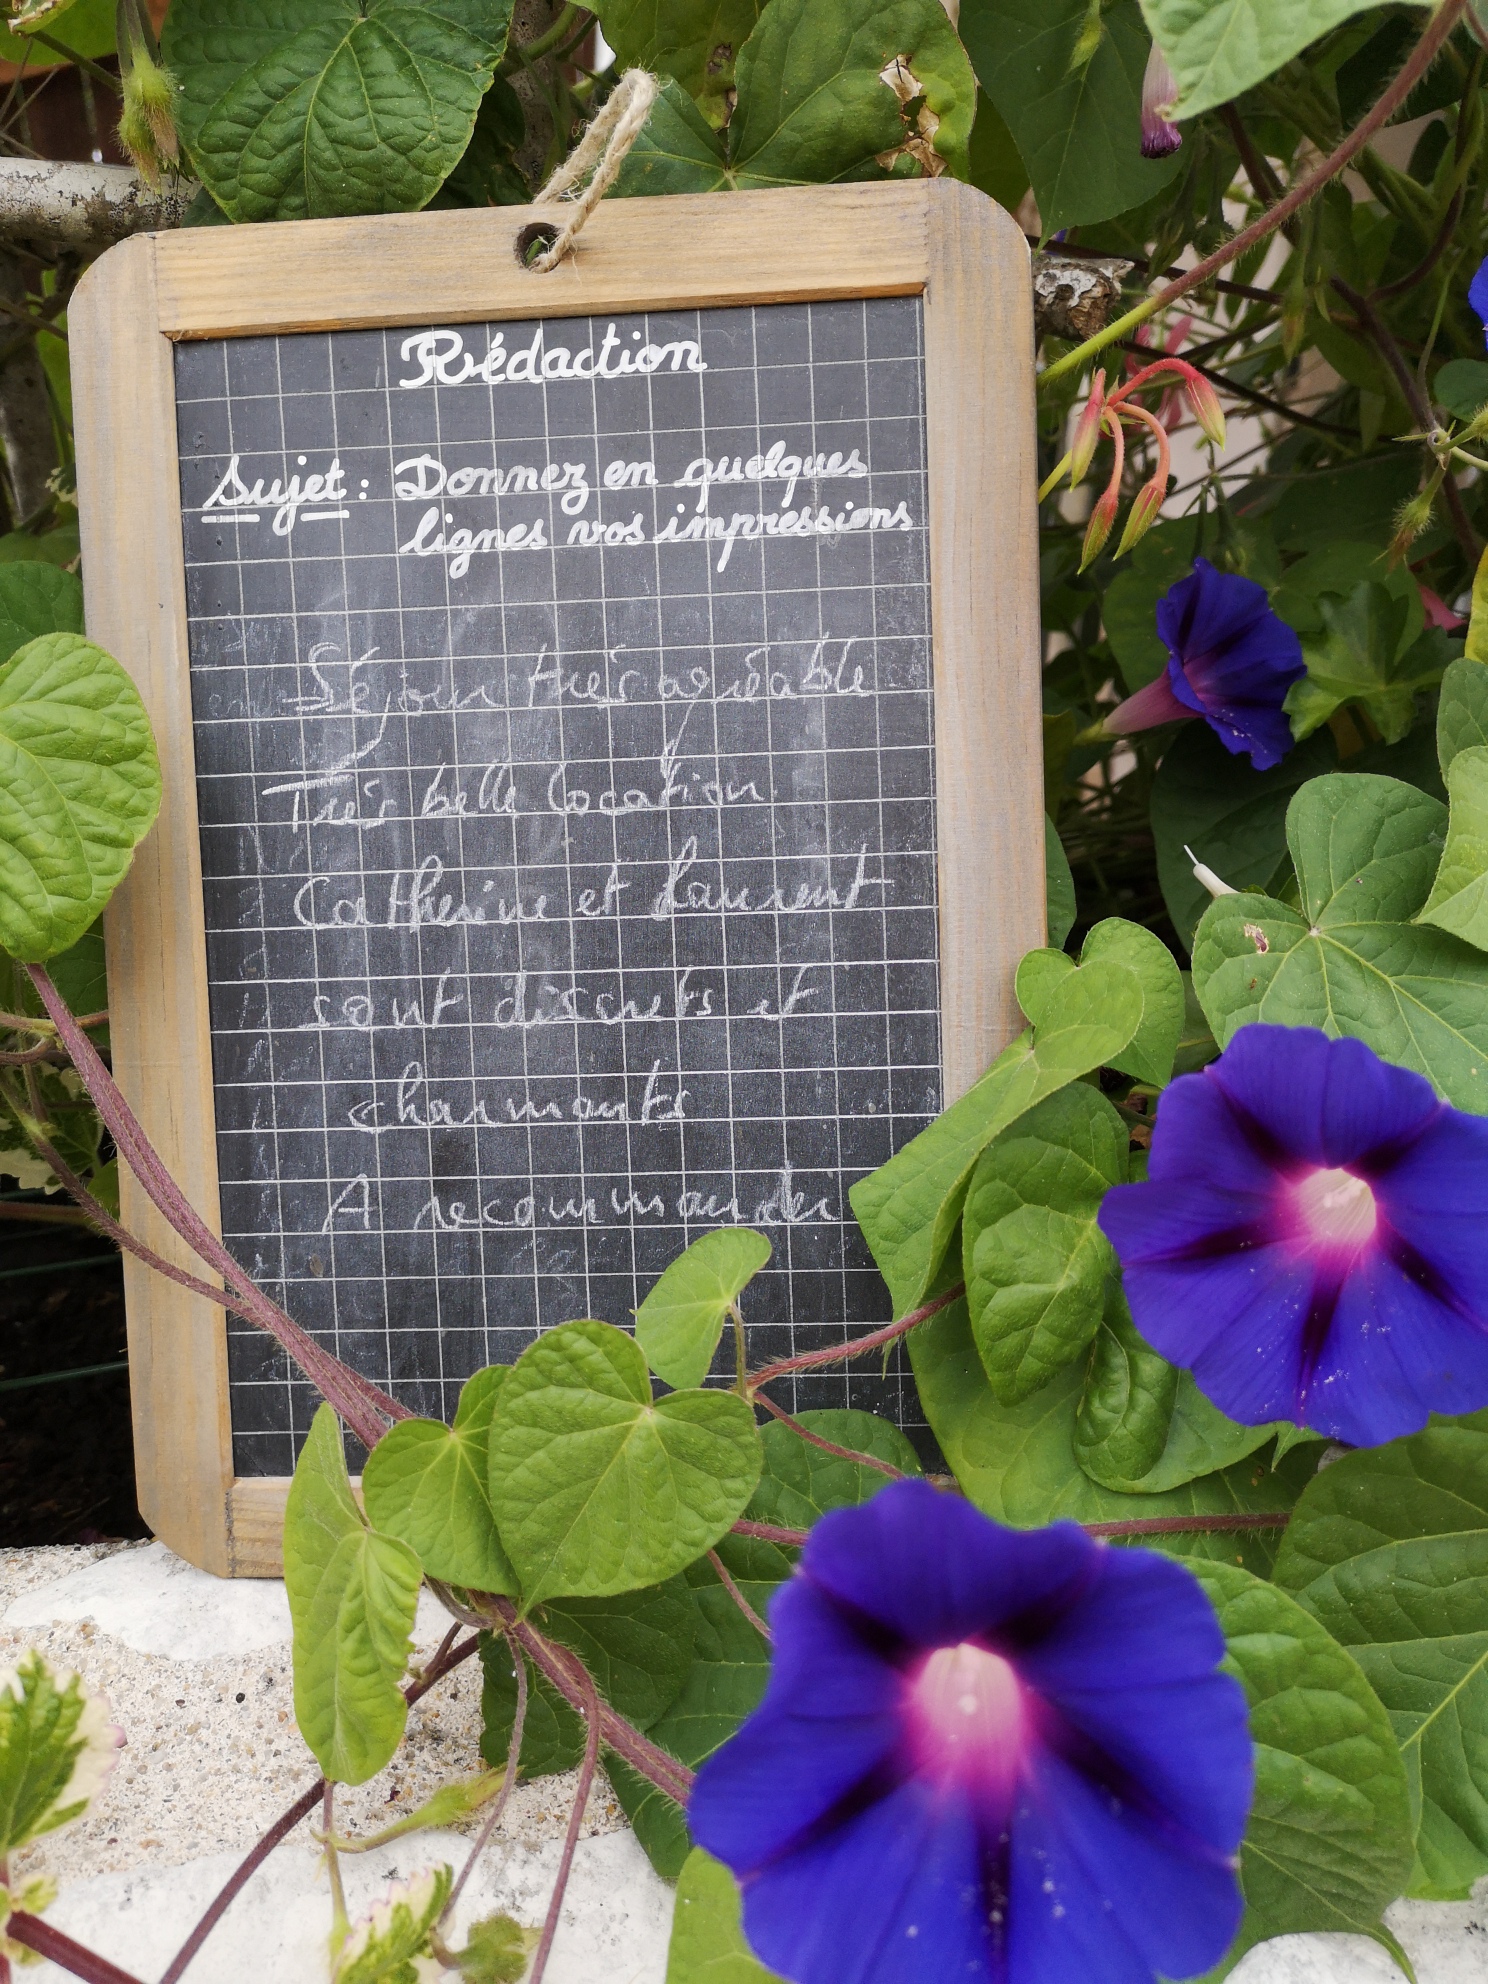 Rédaction
Sujet : Donnez en quelques
lignes vos impressions
Séjour très agréable
Très belle location
Catherine et Laurent
sont discrets et
charmants
A recommander